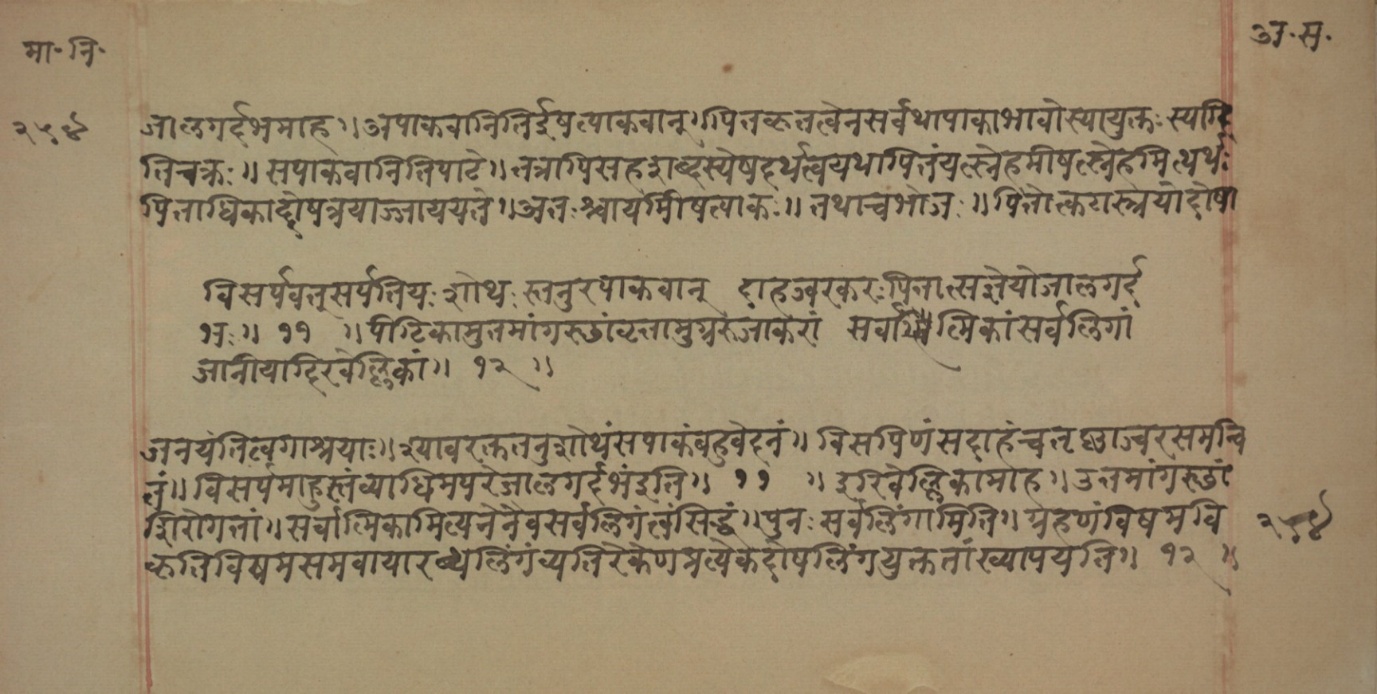 मा॰ नि॰
अ॰ स॰
२५४
जालगर्दभमाह ॥ अपाकवानितिईषत्पाकवान् ॥ पित्तकृतत्वेनसर्वथापाकाभावोस्यायुक्तः स्यादि
तिचक्रः ॥ सपाकवानितिपाठे ॥ तत्रापिसहशब्दस्येषदर्थत्वयथापित्तंयत्स्नेहमीषत्स्नेहमित्यर्थः
पित्ताधिकाद्दोषत्रयाज्जाययते ॥ अतःश्चायमीषत्पाकः ॥ तथाचभोजः ॥ पित्तोत्कटास्त्रयोदोषा
विसर्पवत्सर्पतियः शोथः स्तनुरपाकवान् दाहज्वरकरःपित्तात्सज्ञेयोजालगर्द
भः ॥ ११ ॥ पीटिकामुत्तमांगस्छांवृत्तामुग्ररुजाकरां सर्वात्मिकांसर्वलिंगां
जानीयादिरवेल्लिकां ॥ १२ ॥
जनयंतित्वगाश्रयाः ॥ श्यावरक्ततनुशोथंसपाकंबहुवेदनं ॥ विसर्पिणंसदाहंचतृष्णाज्वरसमन्वि
तं ॥ विसर्पमाहुस्तंव्याधिमपरेजालगर्दभंइति ॥ ११ ॥ इरिवेल्लिकामाह ॥ उत्तमांगस्छां
शिरोगत्तां ॥ सर्वात्मिकामित्यनेनैवसर्वलिंगंत्वंसिद्धं ॥ पुनः सर्वलिंगामिति ॥ ग्रहणंविषमवि
कृतिविषमसमवायारब्धलिंगंव्यतिरेकेणप्रत्येकदोषलिंगयुक्ततांख्यापयति ॥ १२ ॥
२५४